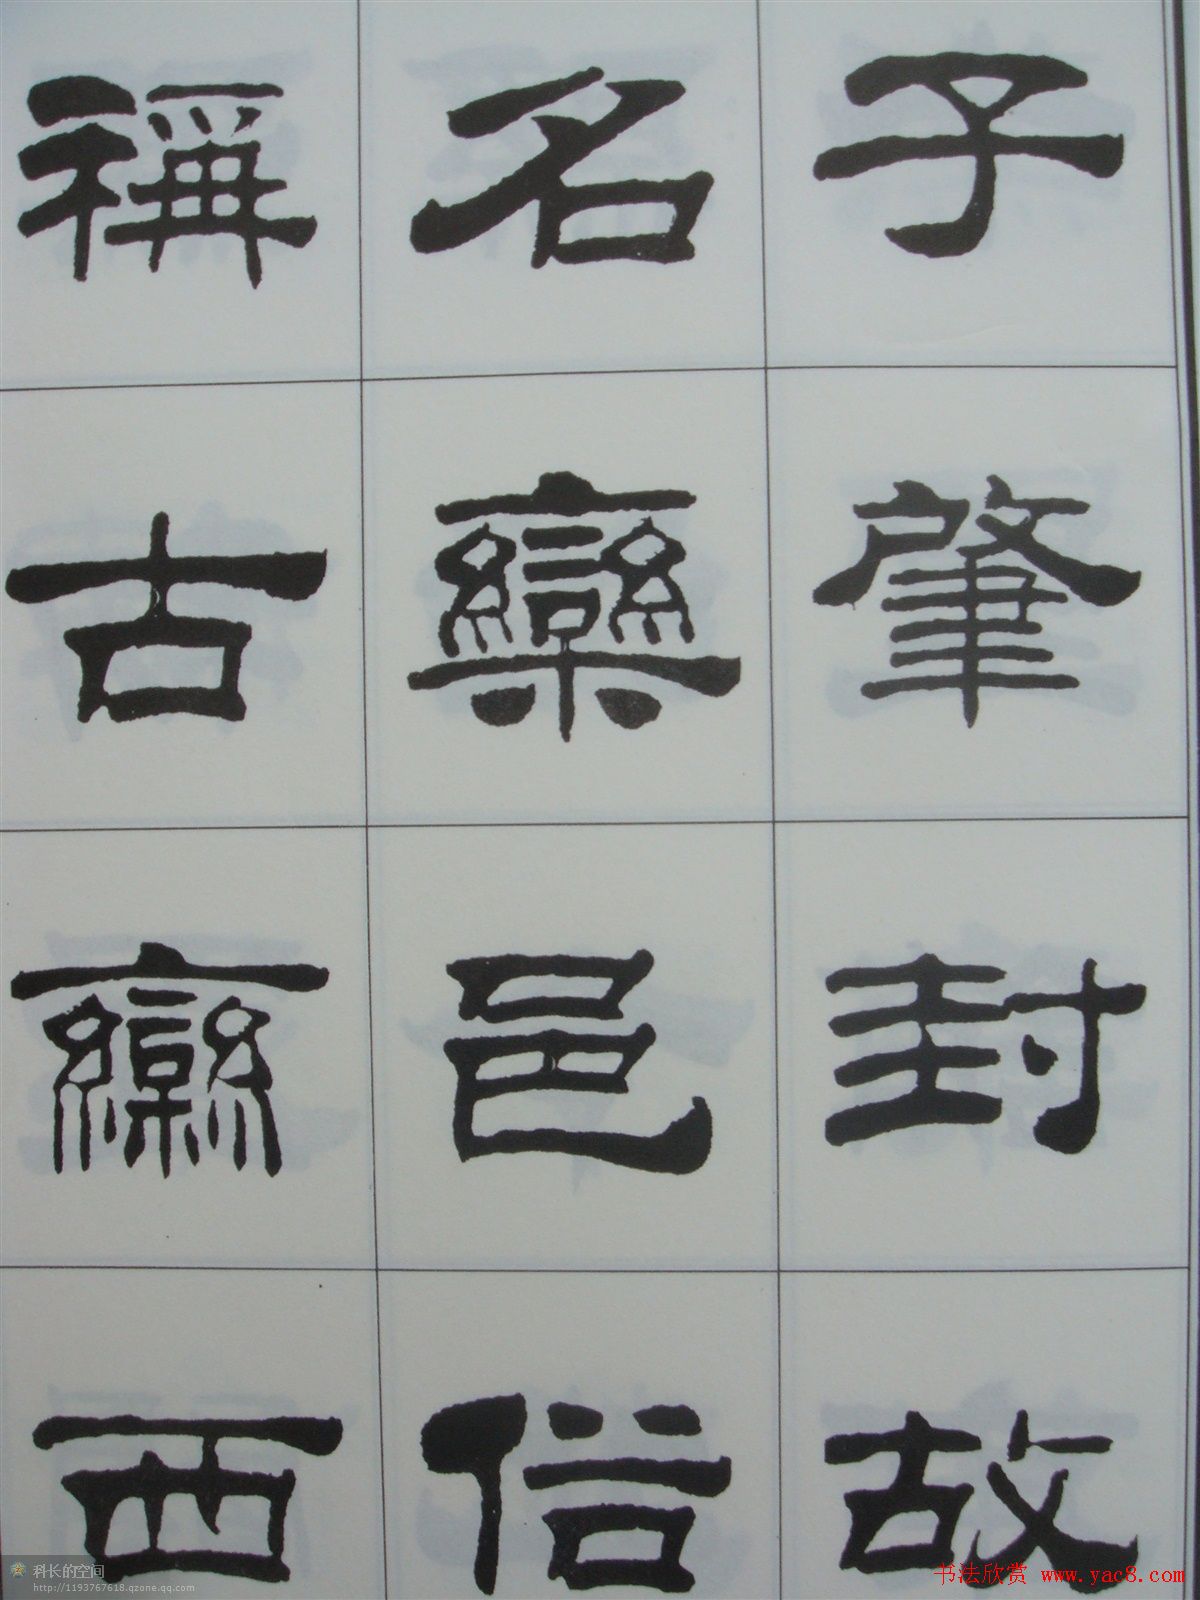 子肇封故
名欒邑俗
稱古欒西
科长的空间
http://1193767618.qzone.qq.com
书法欣赏 www.yac8.com